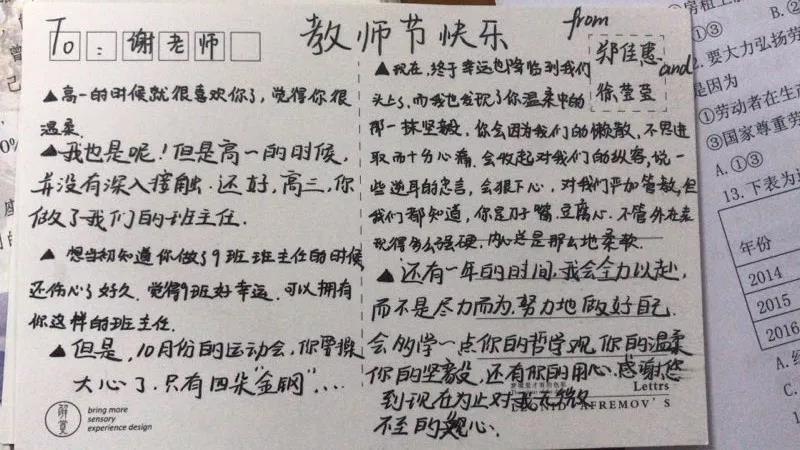 To：谢老师
教师节快乐
from
郑佳惠
and
徐莹莹
▲高一的时候就很喜欢你了，觉得你很
温柔.
▲我也是呢！但是高一的时候，
并没有深入接触.还好，高三，你
做了我们的班主任.
▲想当初知道你做了9班班主任的时候
还伤心了好久.觉得9班好幸运.可以拥有
你这样的班主任.
▲但是，10月份的运动会，你要操
大心了.只有四朵"金钢"...
▲现在，终于幸运也降临到我们
头上了，而我也发现了你温柔中的
那一抹坚毅，你会因为我们的懒散，不思进
取而十分心痛.会收起对我们的纵容，说一
些逆耳的忠言，会狠下心，对我们严加管教，但
我们都知道，你是刀子嘴.豆腐心.不管外在表
现得多么强硬.内心总是那么地柔软.
▲还有一年的时间，我会全力以赴，
而不是尽力而为.努力地做好自己.
会多学一点你的哲学观.你的温柔
你的坚毅.还有你的用心.感谢您
到现在为止对我无微
不至的关心.
Lettrs
AFREMOV'S
解
bring more
sensory
experience design
①③
B.②
要大力弘扬劳
是因为
①劳动者在生产
③国家尊重劳
A.①③
13.下表为
年份
2014
2015
2016
A.
C.